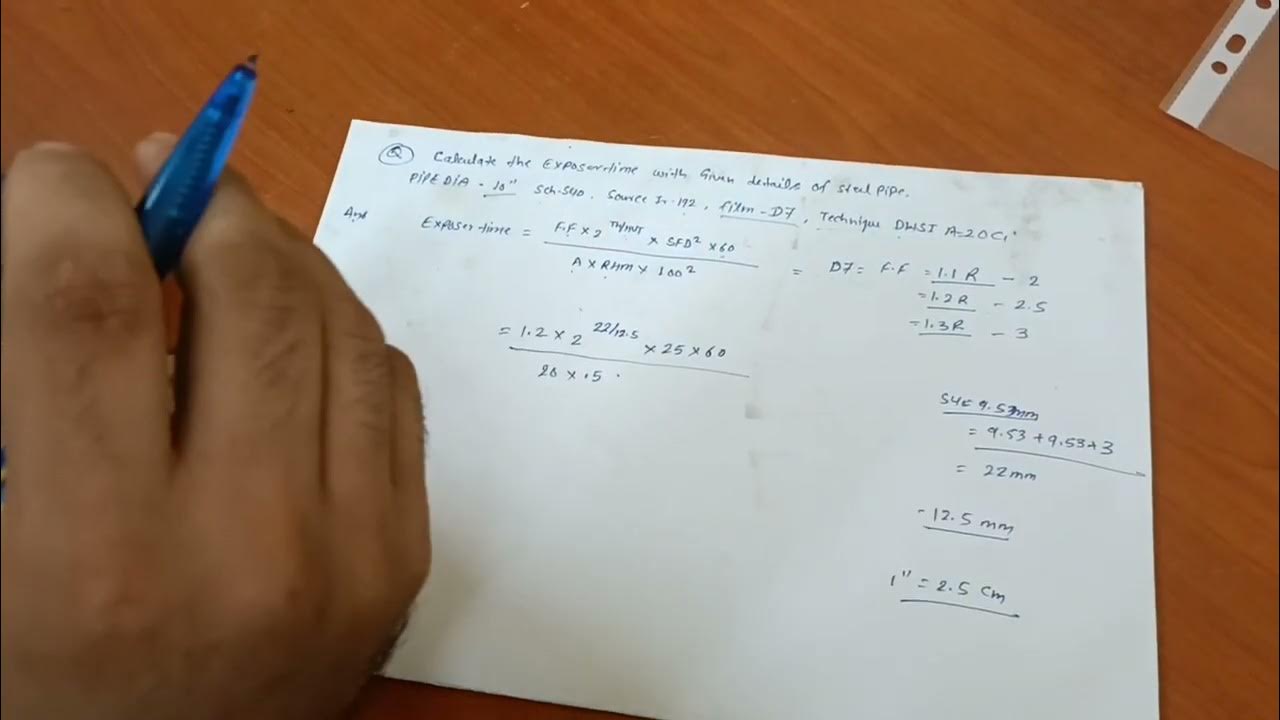 Q Calculate the Exposer time with Given details of steel pipe.
PIPE DIA - 10" Sch-S40, Source Ir-192, film-D7, Technique DWSI A=20Ci
Ans
Exposer time = F.F × 2^TH/HVT × SFD² × 60
A × RHM × 100²
= D7 = F.F = 1.1 R - 2
= 1.2R - 2.5
= 1.3R - 3
= 1.2 × 2^22/12.5 × 25 × 60
20 × .5
S40 9.53mm
= 9.53 + 9.53 + 3
= 22mm
- 12.5 mm
1" = 2.5 cm